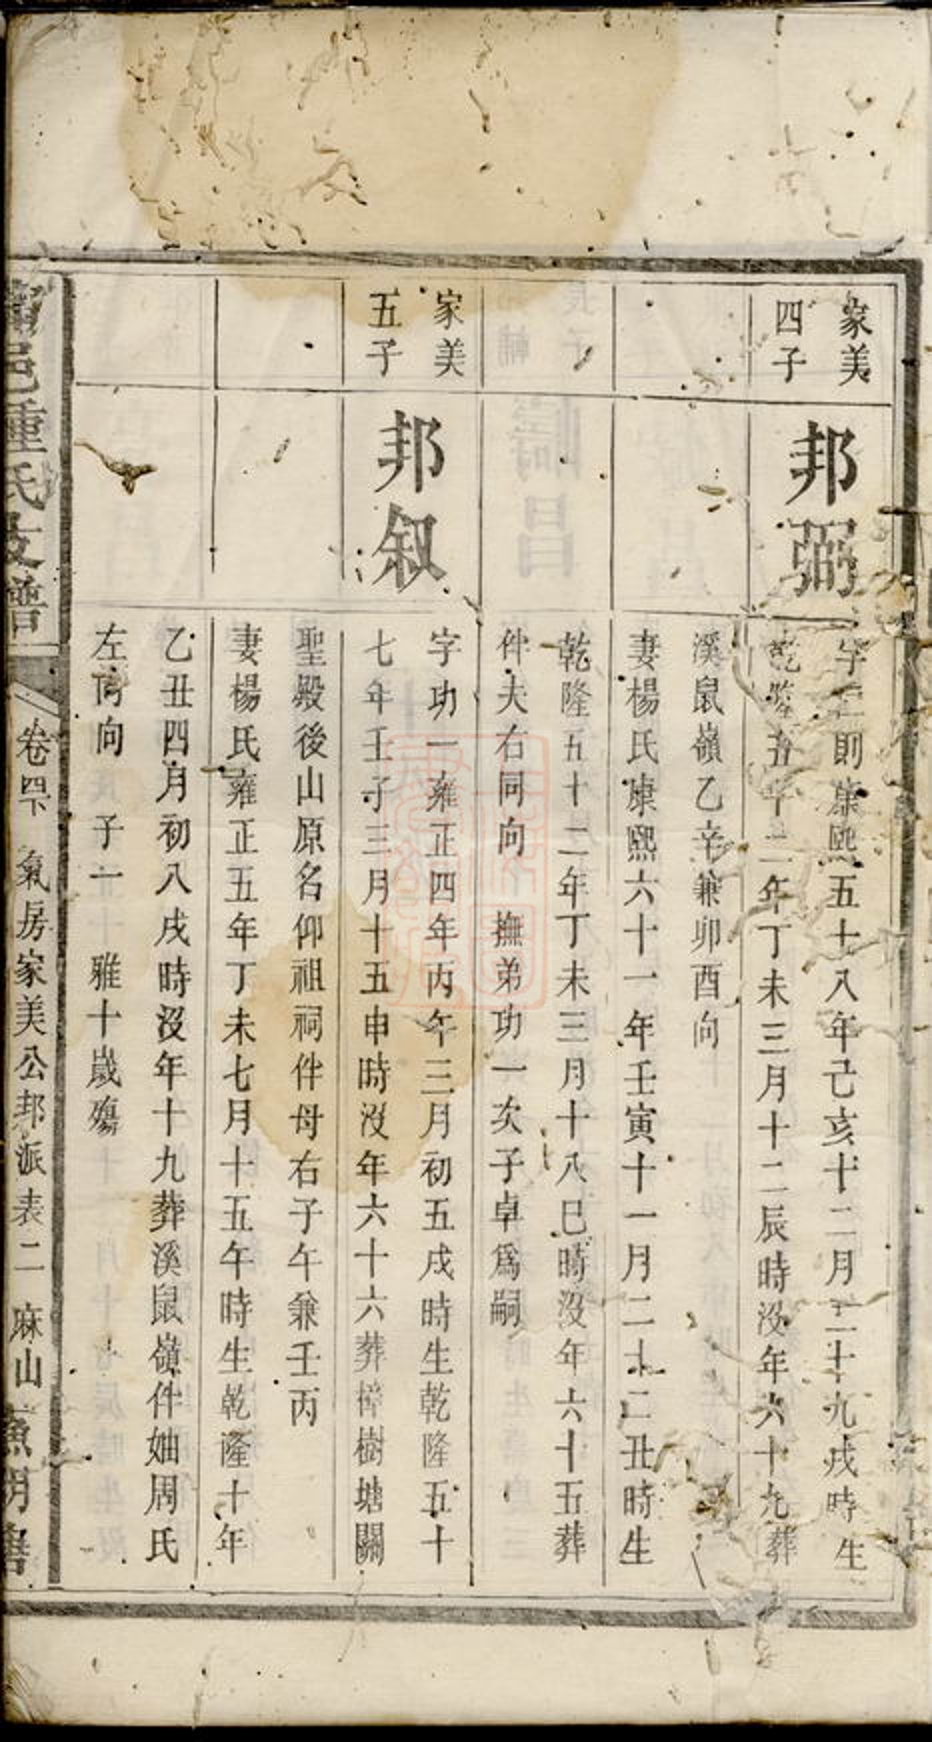 家美
四子
邦弼
字二則康熙五十八年己亥十二月二十九戌時生
乾隆五十二年丁未三月十二辰時没年六十九葬
溪鼠嶺乙辛兼卯酉向
妻楊氏康熙六十一年壬寅十一月二十二丑時生
乾隆五十二年丁未三月十八巳時没年六十五葬
伴夫右同向 撫弟功一次子卓爲嗣
家美
五子
邦叙
字功一雍正四年丙午三月初五戌時生乾隆五十
七年壬子三月十五申時没年六十六葬樟樹塘關
聖殿後山原名仰祖祠伴母右子午兼壬丙
妻楊氏雍正五年丁未七月十五午時生乾隆十年
乙丑四月初八戌時没年十九葬溪鼠嶺伴妯周氏
左同向 子一 雅十歲殤
邑鍾氏支譜
卷四下 氣房家美公邦派表二 麻山